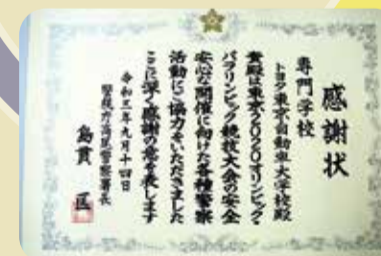 感謝状
専門学校
トヨタ東京自動車大学校殿
貴殿は東京2020オリンピック・
パラリンピック競技大会の安全
安心な開催に向けた各種警察
活動にご協力をいただきました
ここに深く感謝の意を表します
令和三年九月十四日
警視庁高尾警察署長
島貫 匡